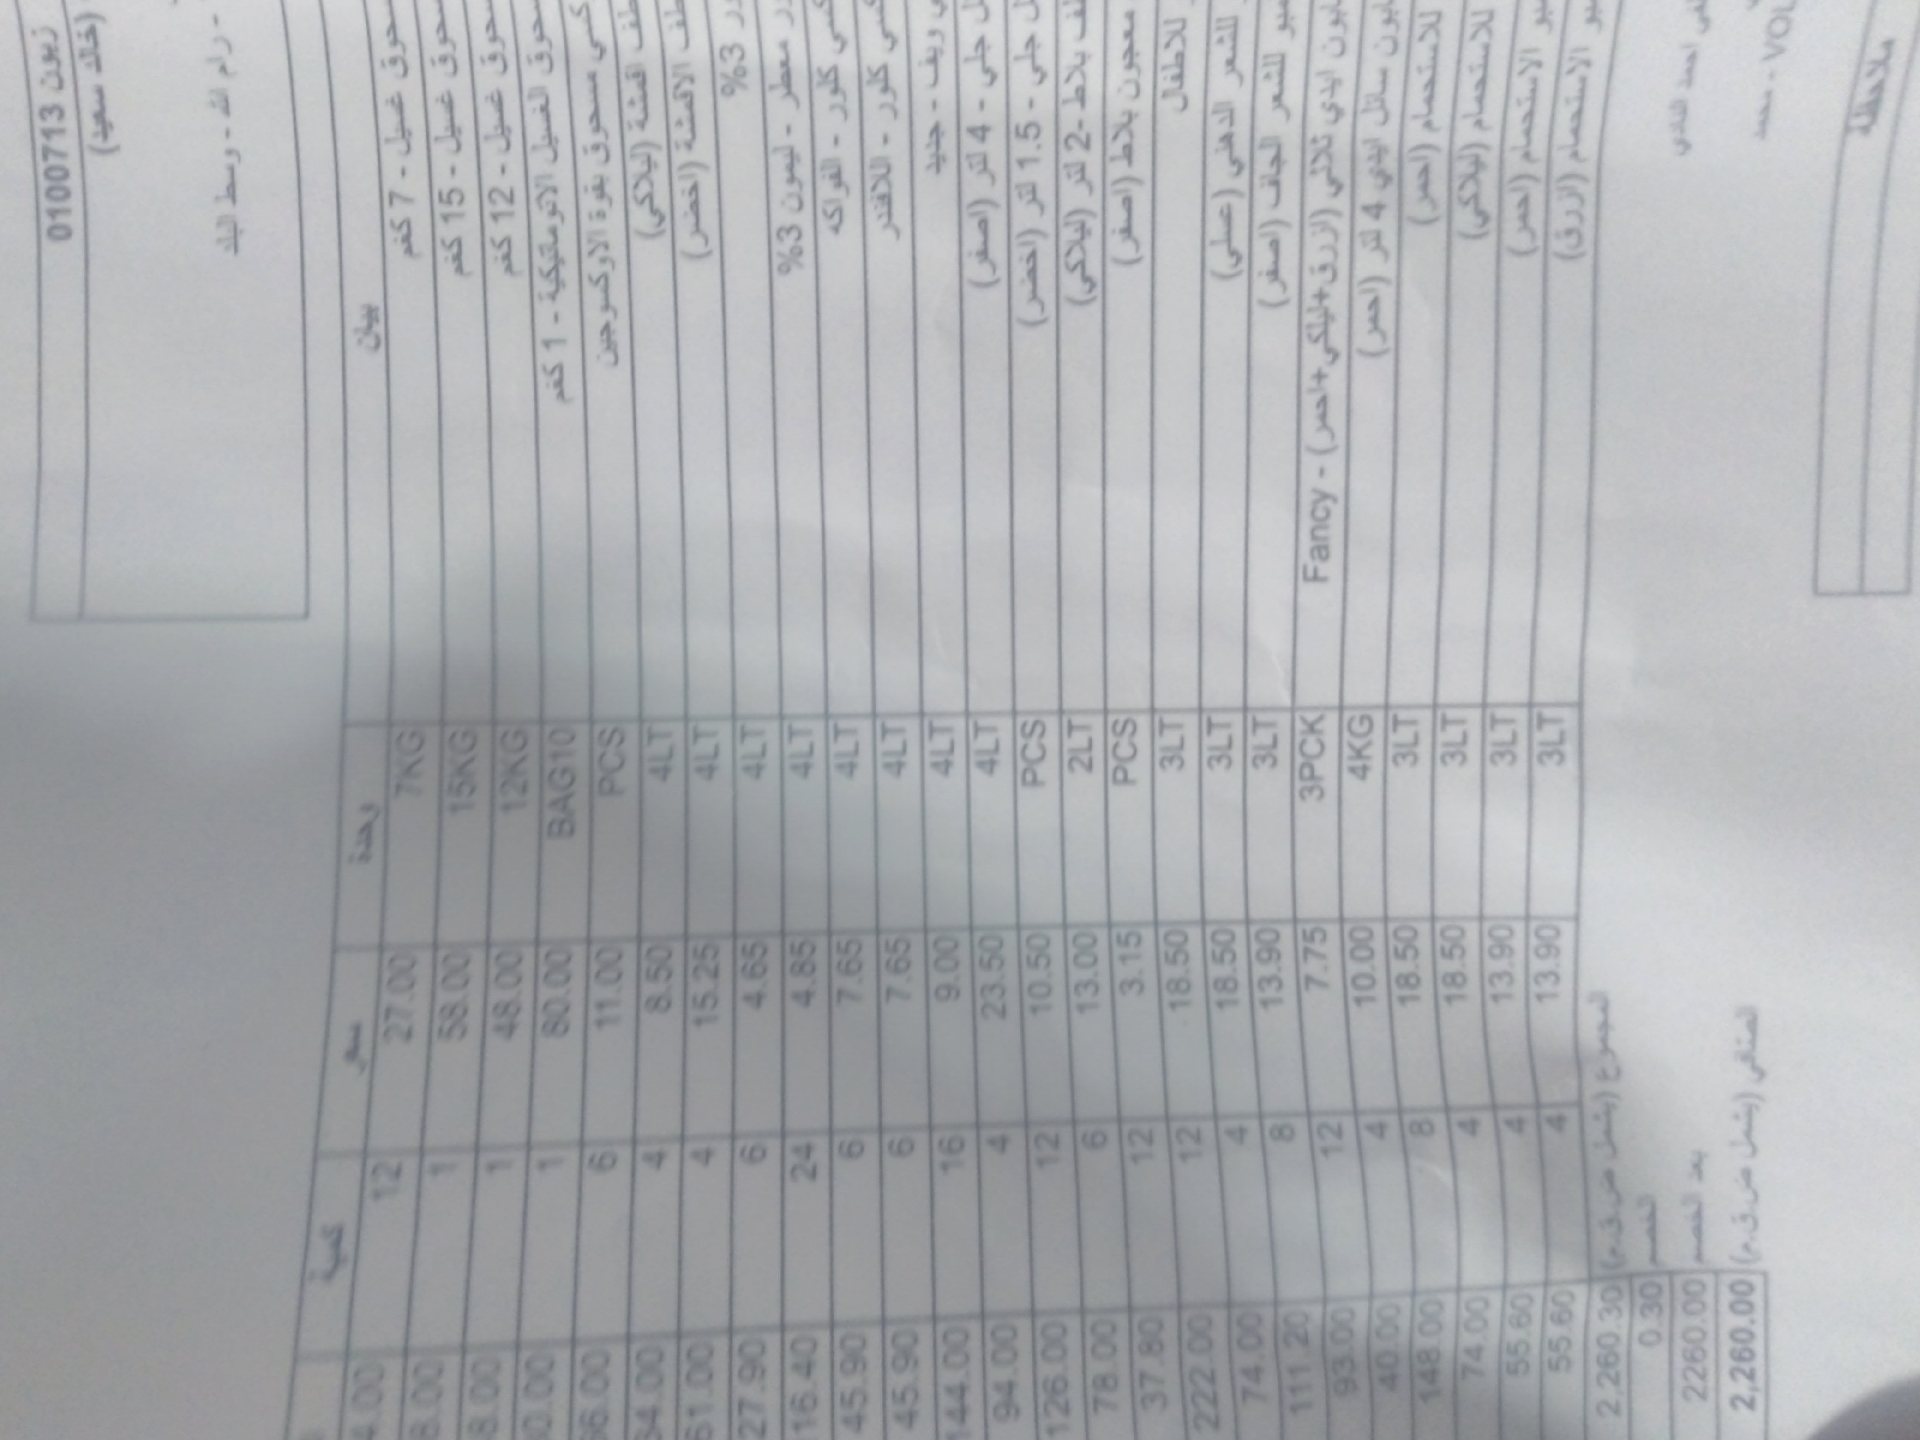 زبون 0100713
(خالد سعيد)
- رام الله - وسط البلد
بيان وحدة سعر كمية
غسيل - 7 كغم 7KG 27.00 12 4.00
غسيل - 15 كغم 15KG 58.00 1 8.00
غسيل - 12 كغم 12KG 48.00 1 8.00
الغسيل الاتوماتيكية - 1 كغم BAG10 80.00 1 0.00
مسحوق بقوة الاوكسوجين PCS 11.00 6 66.00
اقمشة (ليلاكي) 4LT 8.50 4 34.00
الاقمشة (اخضر) 4LT 15.25 4 61.00
3% 4LT 4.65 6 27.90
معطر - ليمون 3% 4LT 4.85 24 16.40
كلور - الفواكه 4LT 7.65 6 45.90
كلور - اللافندر 4LT 7.65 6 45.90
ويف - جديد 4LT 9.00 16 144.00
جلي - 4 لتر (اصفر) 4LT 23.50 4 94.00
جلي - 1.5 لتر (اخضر) PCS 10.50 12 126.00
بلاط -2 لتر (ليلاكي) 2LT 13.00 6 78.00
معجون بلاط (اصفر) PCS 3.15 12 37.80
للاطفال 3LT 18.50 12 222.00
للشعر الدهني (عسلي) 3LT 18.50 4 74.00
للشعر الجاف (اصفر) 3LT 13.90 8 111.20
ايدي ثلاثي (ازرق+ليلكي+احمر) - Fancy 3PCK 7.75 12 93.00
سائل ايدي 4 لتر (احمر) 4KG 10.00 4 40.00
للاستحمام (احمر) 3LT 18.50 8 148.00
للاستحمام (ليلاكي) 3LT 18.50 4 74.00
الاستحمام (احمر) 3LT 13.90 4 55.60
الاستحمام (ازرق) 3LT 13.90 4 55.60
المجموع (يشمل ض.ق.م) 2,260.30
الخصم 0.30
بعد الخصم 2260.00
المتبقي (يشمل ض.ق.م) 2,260.00
VOL - محمد
ملاحظة